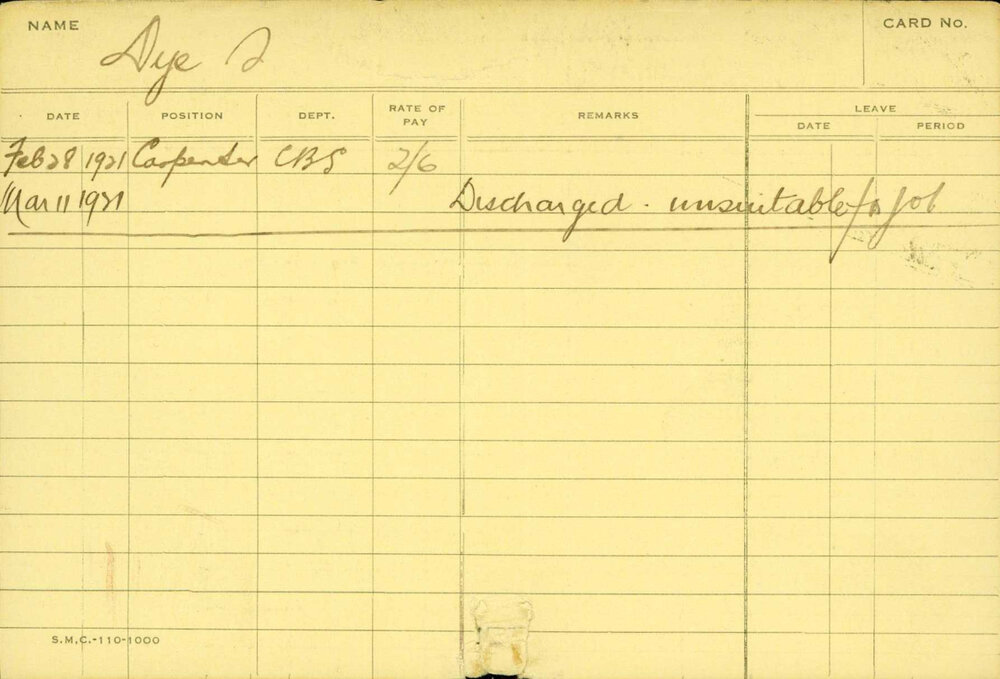 NAME Dye
CARD No.
DATE POSITION DEPT. RATE OF PAY REMARKS LEAVE
DATE PERIOD
Feb 28 1921 Carpenter CBS 2/6
Mar 11 1921 Discharged - unsuitable for job
S.M.C.-110-1000